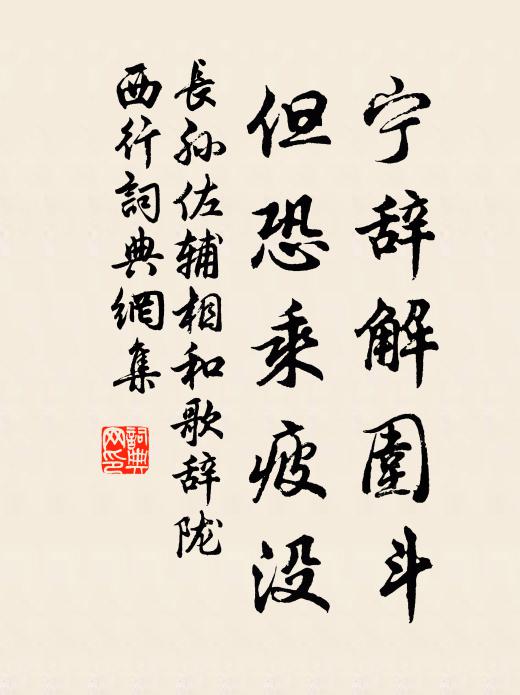 宁辞解圍斗
但恐乘疲没
長孙佐辅相和歌辞陇
西行詞典網集
詞典网印